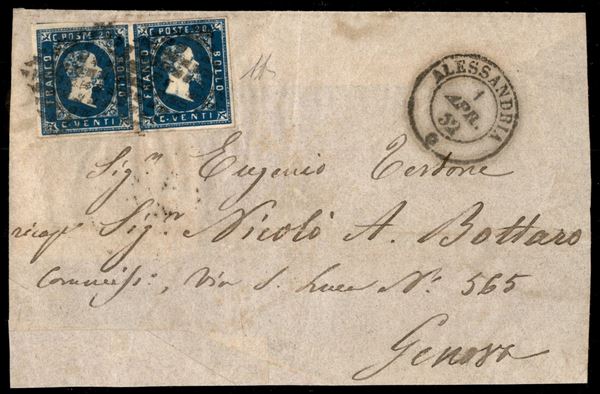 C. POSTE. 20 C. POSTE. 20
FRANCO BOLLO FRANCO BOLLO
C. VENTI C. VENTI
11
ALESSANDRIA
1
APR.
52
Sig.r Eugenio Terdone
recapo Sig.r Nicolò A. Bottaro
Commiss:, Via S. Luca N.º 565
Genova